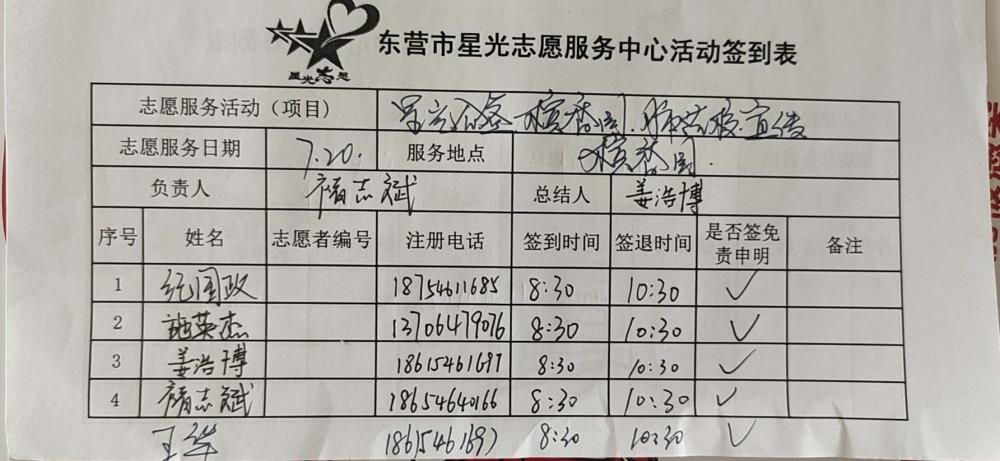 星光志愿
东营市星光志愿服务中心活动签到表
志愿服务活动（项目） 星光 宣传
志愿服务日期 7.20. 服务地点
负责人 志斌 总结人 姜浩博
序号 姓名 志愿者编号 注册电话 签到时间 签退时间 是否签免责申明 备注
1 纪国政 18754611685 8:30 10:30 ✓
2 施英杰 13706479076 8:30 10:30 ✓
3 姜浩博 18615461697 8:30 10:30 ✓
4 志斌 18654640166 8:30 10:30 ✓
王华 18615461697 8:30 10:30 ✓